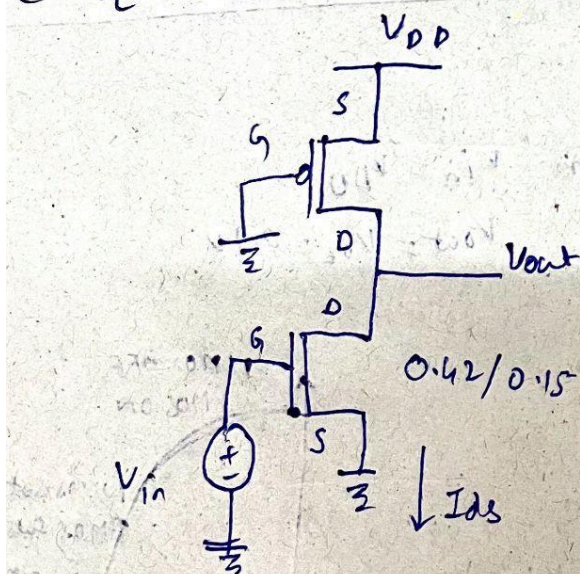 VDD
S
G
D
Vout
D
G
0.42/0.15
S
+
-
Vin
Ids